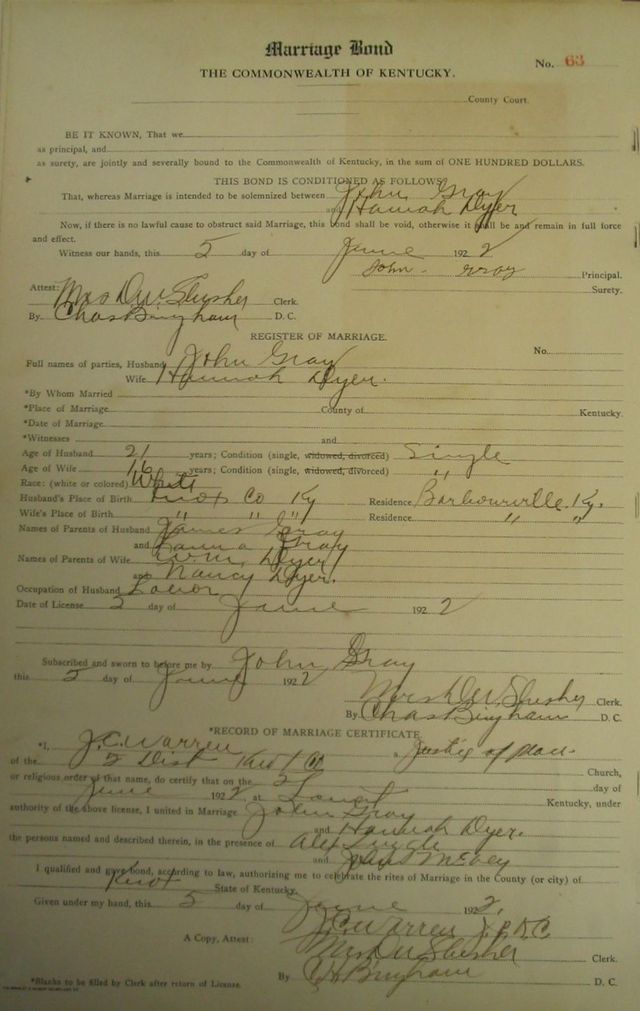 Marriage Bond
No. 63
THE COMMONWEALTH OF KENTUCKY.
County Court.
BE IT KNOWN, That we
as principal, and
as surety, are jointly and severally bound to the Commonwealth of Kentucky, in the sum of ONE HUNDRED DOLLARS.
THIS BOND IS CONDITIONED AS FOLLOWS:
That, whereas Marriage is intended to be solemnized between John Gray
and Hannah Dyer
Now, if there is no lawful cause to obstruct said Marriage, this bond shall be void, otherwise it shall be and remain in full force
and effect.
Witness our hands, this 5 day of June 1922
John Gray Principal.
Surety.
Attest: Mrs D.W. Slusher Clerk.
By Chas Bingham D. C.
REGISTER OF MARRIAGE.
No.
Full names of parties, Husband John Gray
Wife Hannah Dyer.
*By Whom Married
*Place of Marriage County of Kentucky.
*Date of Marriage
*Witnesses and
Age of Husband 21 years; Condition (single, widowed, divorced) Single
Age of Wife 16 years; Condition (single, widowed, divorced) "
Race: (white or colored) White
Husband's Place of Birth Knox Co Ky Residence Barbourville, Ky.
Wife's Place of Birth " " " Residence " "
Names of Parents of Husband James Gray
and Gray
Names of Parents of Wife Wm. Dyer
and Nancy Dyer.
Occupation of Husband Labor
Date of License 5 day of June 1922
Subscribed and sworn to before me by John Gray
this 5 day of June 1922
Mrs D.W. Slusher Clerk.
By Chas Bingham D. C.
*RECORD OF MARRIAGE CERTIFICATE
*I, J.C. Warren a Justice of
of the 5 Dist Knox Co Church,
or religious order of that name, do certify that on the 5 day of
June 1922, at Kentucky, under
authority of the above license, I united in Marriage John Gray
and Hannah Dyer.
the persons named and described therein, in the presence of Alex
and John McVey
I qualified and gave bond, according to law, authorizing me to celebrate the rites of Marriage in the County (or city) of
Knox State of Kentucky.
Given under my hand, this 5 day of June 1922.
J.C. Warren J.P.K.C
A Copy, Attest: Mrs D.W. Slusher Clerk.
By C.H. Bingham D. C.
*Blanks to be filled by Clerk after return of License.